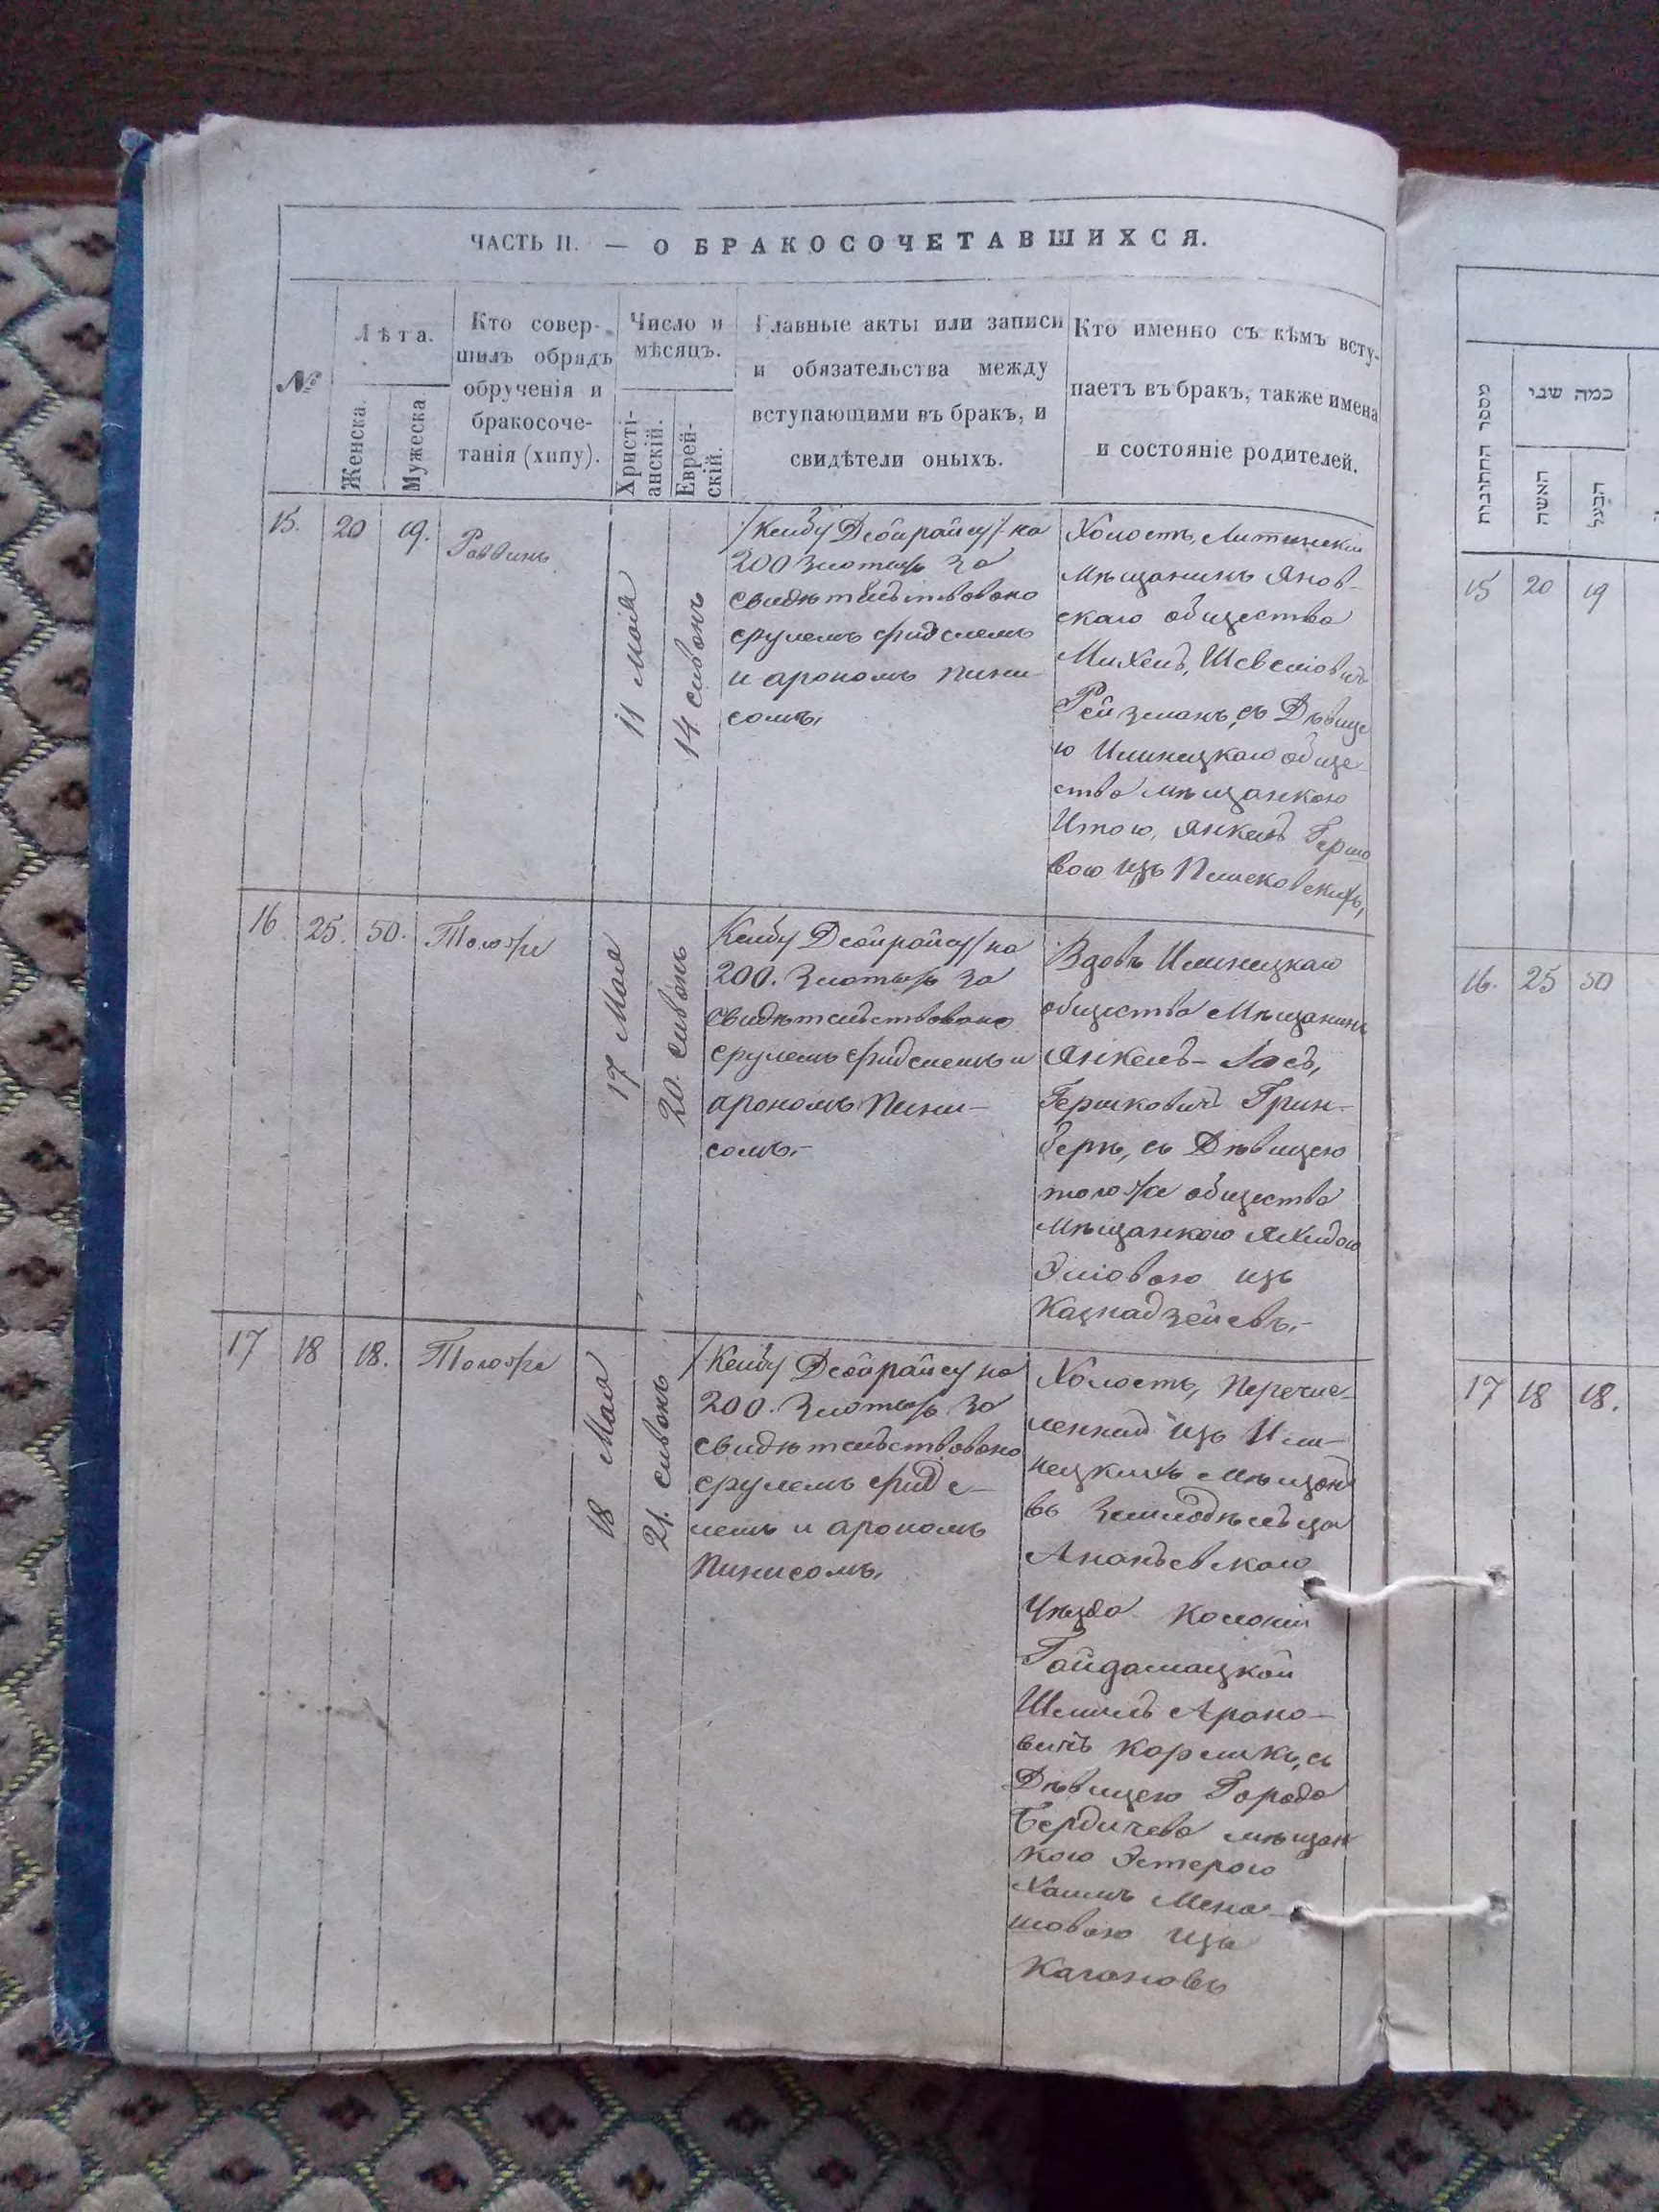 ЧАСТЬ II. — О БРАКОСОЧЕТАВШИХСЯ.
№
Лѣта.
Женска.
Мужеска
Кто совер-
шилъ обрядъ
обрученія и
бракосоче-
танія (хипу).
Число и
мѣсяцъ.
Христі-
анскій.
Еврей-
скій.
Главные акты или записи
и обязательства между
вступающими въ бракъ, и
свидѣтели оныхъ.
Кто именно съ кѣмъ всту-
паетъ въ бракъ, также имена
и состояніе родителей.
15.
20
19.
Раввинъ
11 Мая
14 сивонъ
на
200 Злотыхъ За
свидѣтельствовано
срулемъ
и арономъ пини
сомъ,
Холостъ, Литинскій
мѣщанинъ Янов-
скаго общества
Михель,
Рейзманъ, съ Дѣвице
ю Илинецкаго обще-
ства мѣщанкою
Итою, Янкель Гершо
вою изъ
16.
25.
50.
Тогоже
17 Мая
20. сивонъ
на
200. Злотыхъ За
свидѣтельствовано
срулемъ и
арономъ Пини-
сомъ.-
Вдовъ Илинецкаго
общества Мѣщанинъ
Янкель-
Гершковичъ Грин-
бергъ, съ Дѣвицею
тогоже общества
Мѣщанкою
изъ
Казнадзеевъ.-
17
18
18.
Тогоже
18 Мая
21. сивонъ
на
200. Злотыхъ За
свидѣтельствовано
срулемъ
и арономъ
Пинисомъ,
Холостъ, Перечис-
ленный изъ Или-
нецкихъ мѣщанъ
въ Земледѣльца
Ананьевскаго
Уѣзда Колоніи
Гайдамацкой
Шмиль Ароно-
вичъ съ
Дѣвицею Города
Бердичева мѣщан
кою Эстерою
Мена-
шовою изъ
Кагановъ
מספר החתונות
כמה שני
האשה
הבעל
15
20
19
16.
25
50
17
18
18.